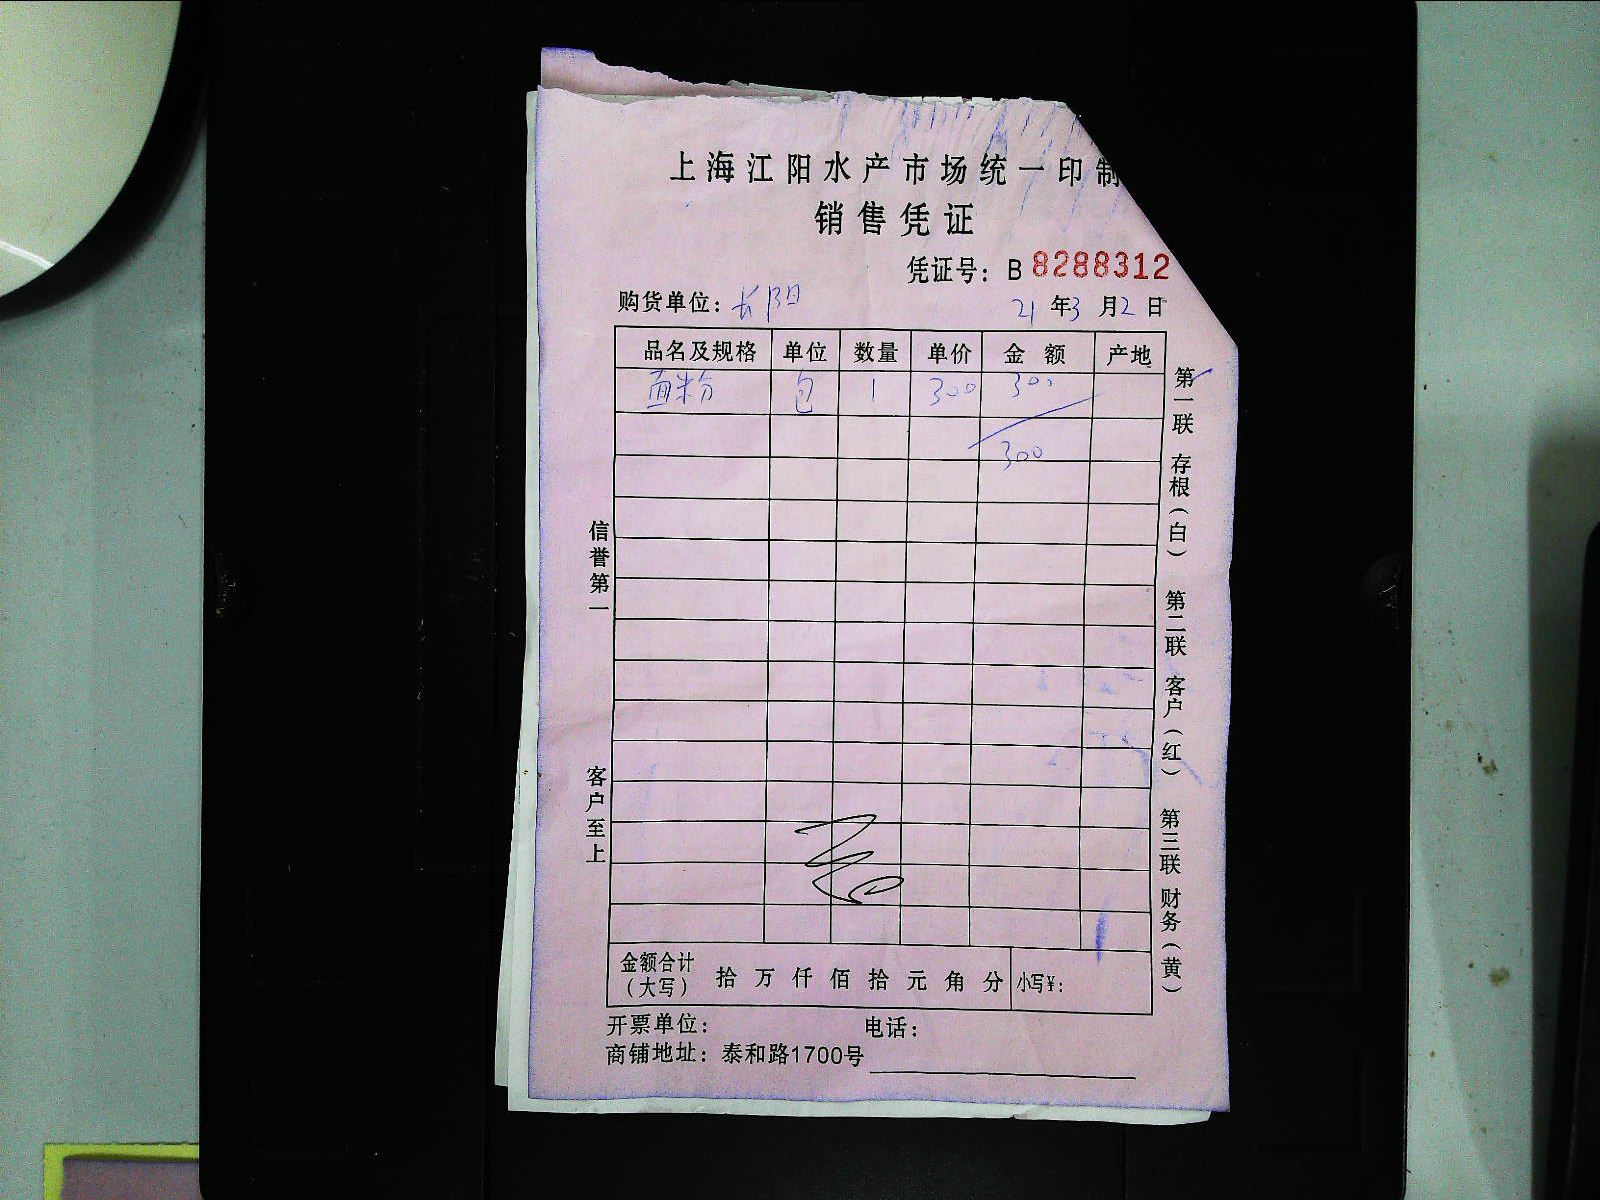 上海江阳水产市场统一印制
销售凭证
凭证号：B 8288312
购货单位：长阳 21年3月2日
品名及规格 单位 数量 单价 金额 产地
面粉 包 1 300 300
300
信誉第一
客户至上
第一联 存根（白） 第二联 客户（红） 第三联 财务（黄）
金额合计（大写） 拾万仟佰拾元角分 小写¥：
开票单位： 电话：
商铺地址：泰和路1700号